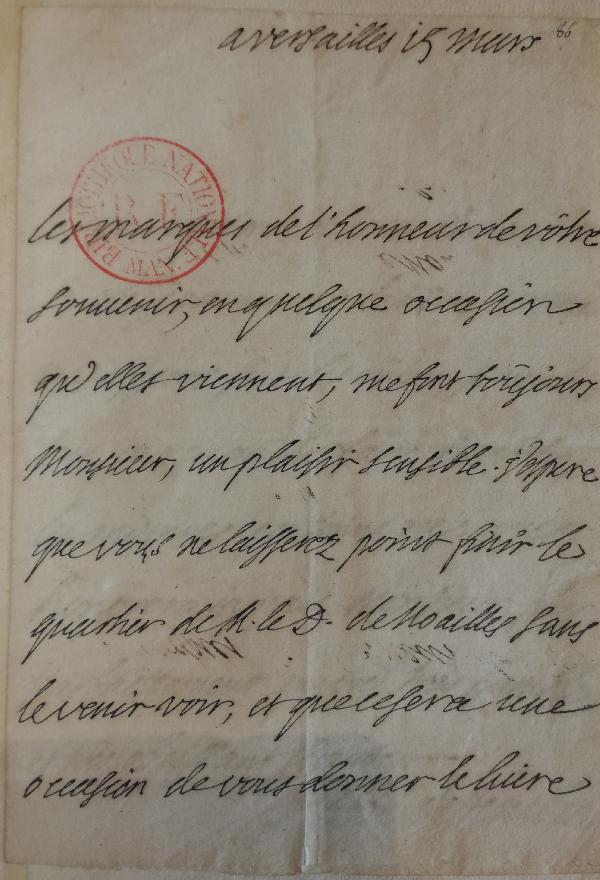 a versailles 15 mars
86
BIBLIOTHEQUE NATIONALE MAN
R F
les marques de l'honneur de vôtre
souuenir, en quelque occasion
qu'elles viennent, me font toûjours
Monsieur, un plaisir sensible. j'espere
que vous ne laisserez point finir le
quartier de M. le D. de Noailles sans
le venir voir, et que ce sera une
occasion de vous donner le liure